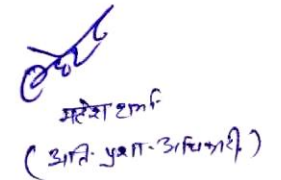 महेश शर्मा
(अति. प्रशा. अधिकारी)